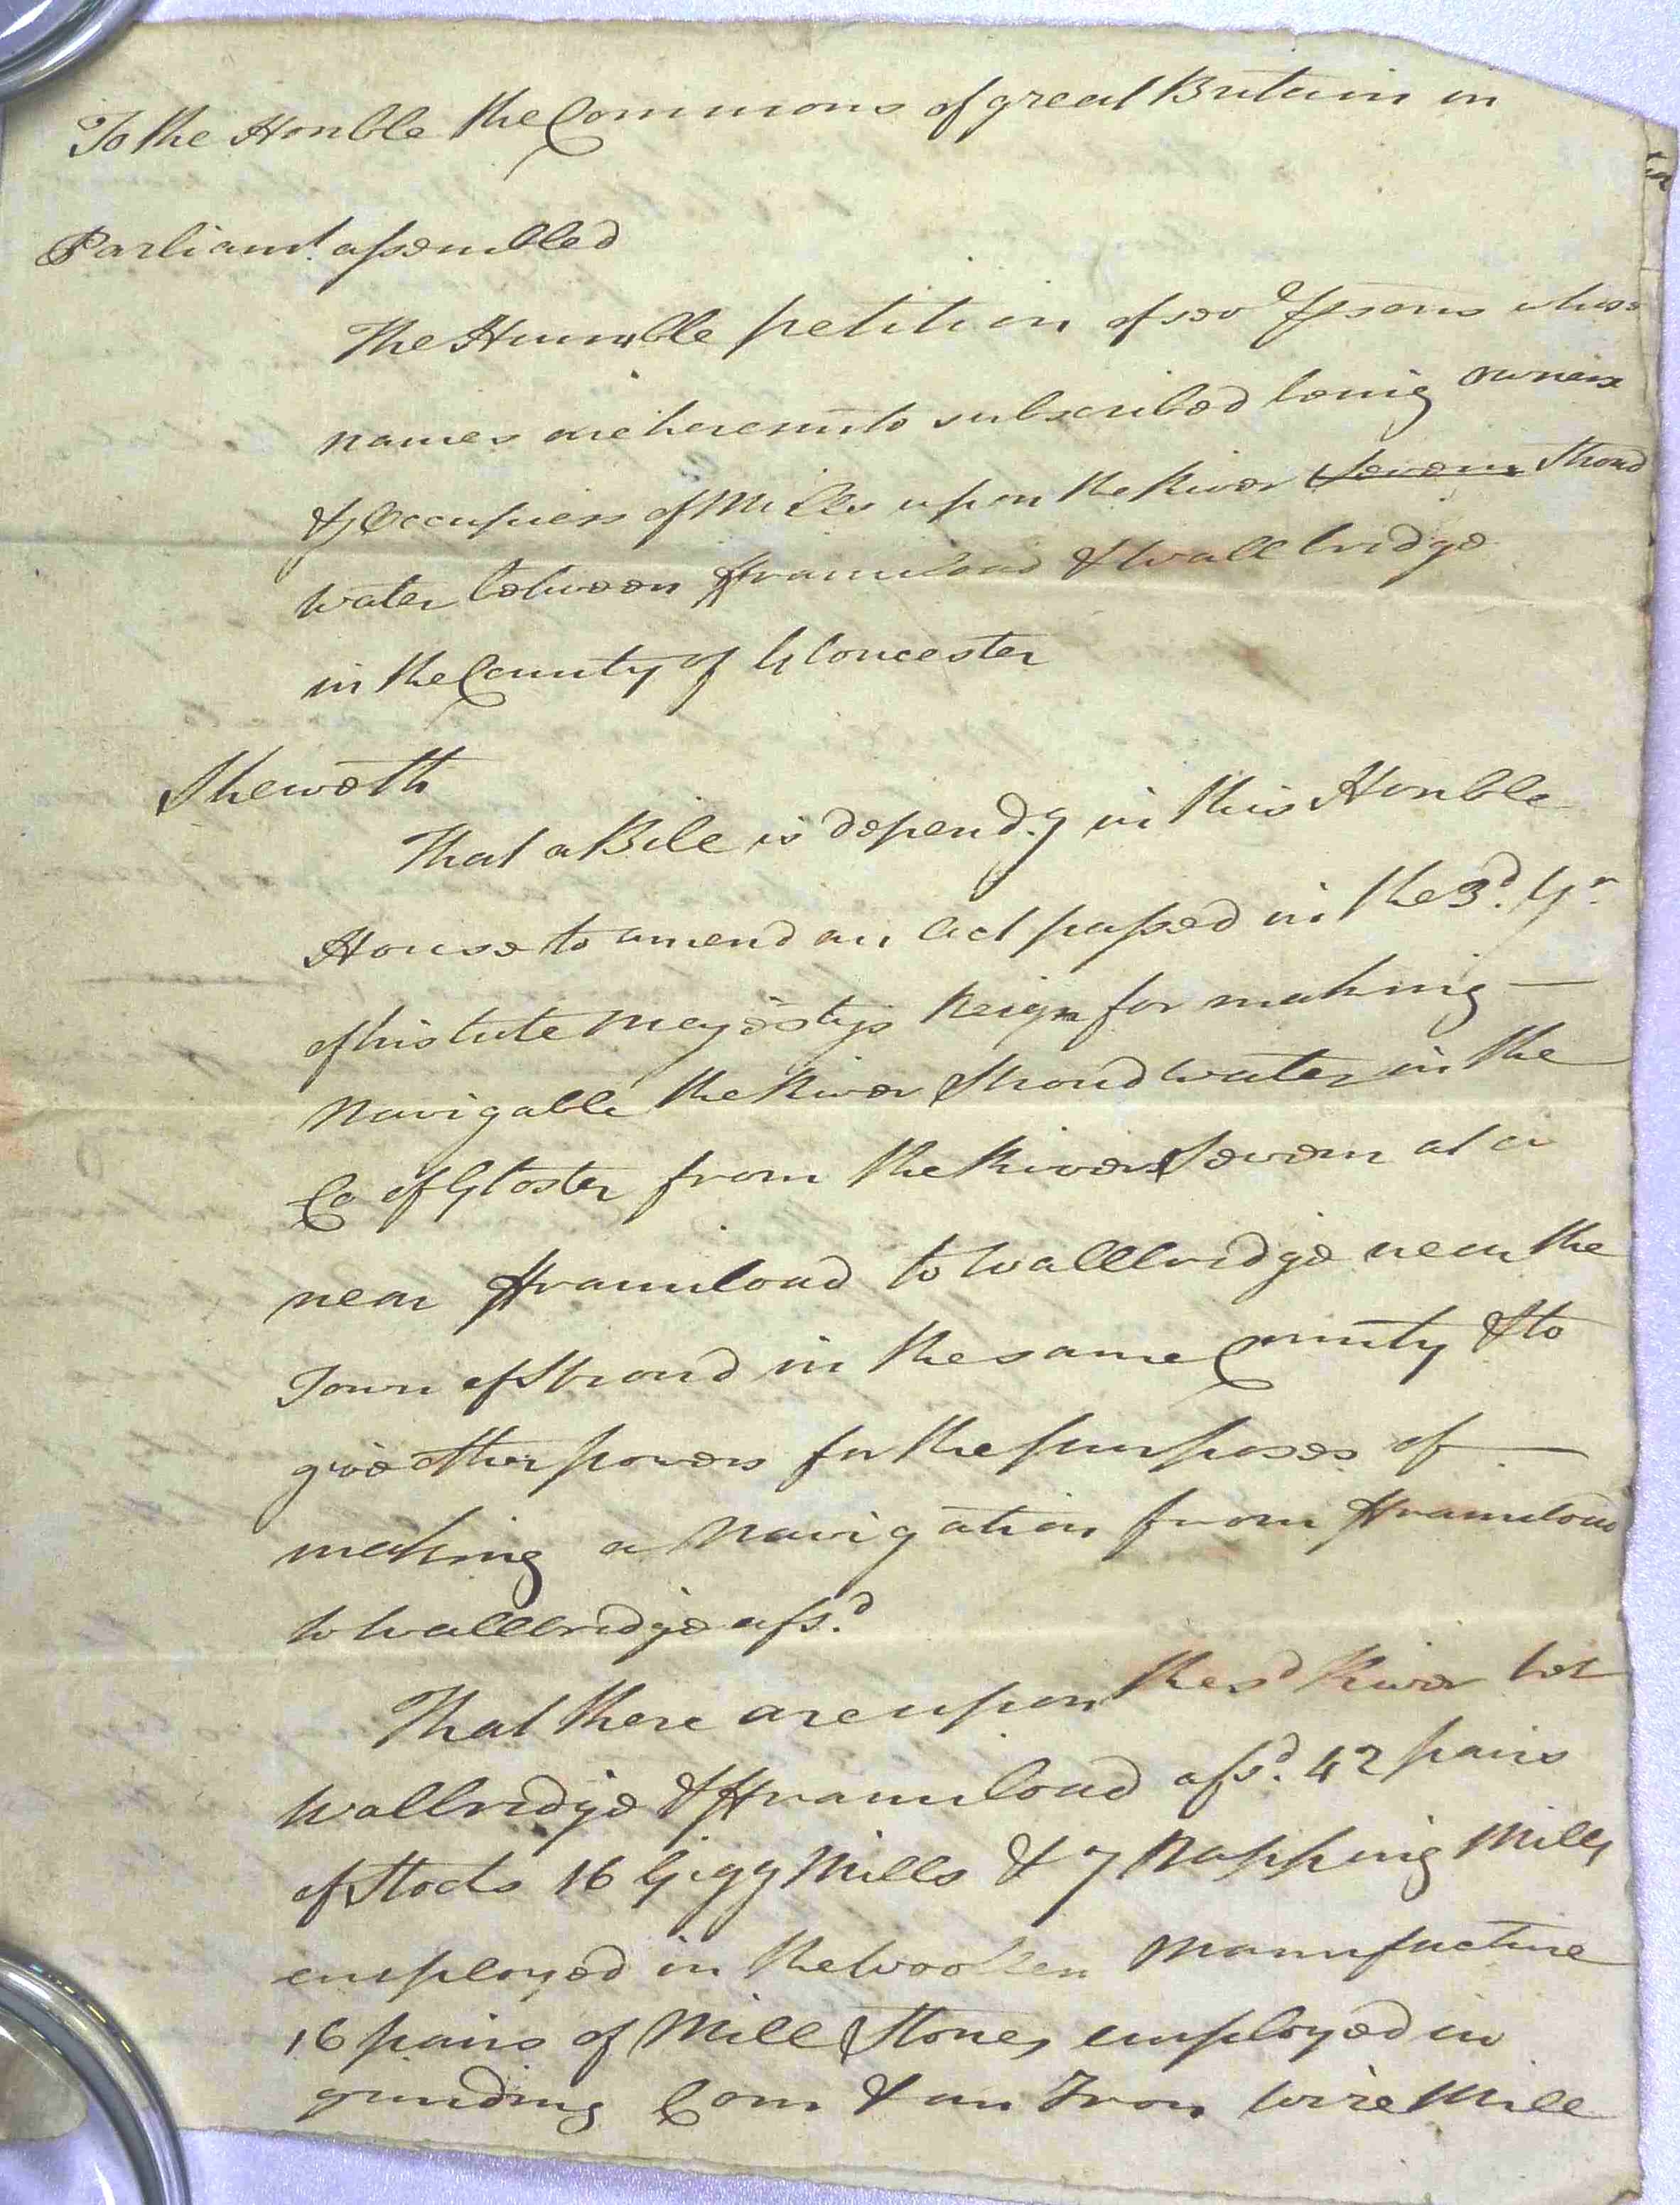 To the Honble the Commons of great Britain in
Parliamt. assembled
The Humble petition of sevl psons whose
names are hereunto subscribed being owners
& Occupiers of Mills upon the River Severn Stroud
water between Framiload & Wallbridge
in the County of Gloucester
Sheweth
That a Bill is depend.g in this Honble
House to amend an act passed in the 3d. Yr.
of his late Majestys Reign for making —
Navigable the River Stroudwater in the
Co of Gloster from the River Severn at or
near Framiload to Wallbridge near the
Town of Stroud in the same County & to
give other powers for the purposes of —
making a Navigation from Framiload
to Wallbridge afsd.
That there are upon the sd River bet
Wallbridge & Framiload afsd. 42 pairs
of Stocks 16 Gigg Mills & 7 Napping Mills
employed in the Woollen Manufacture
16 pairs of Mill Stones employed in
grinding Corn & an Iron Wire Mill